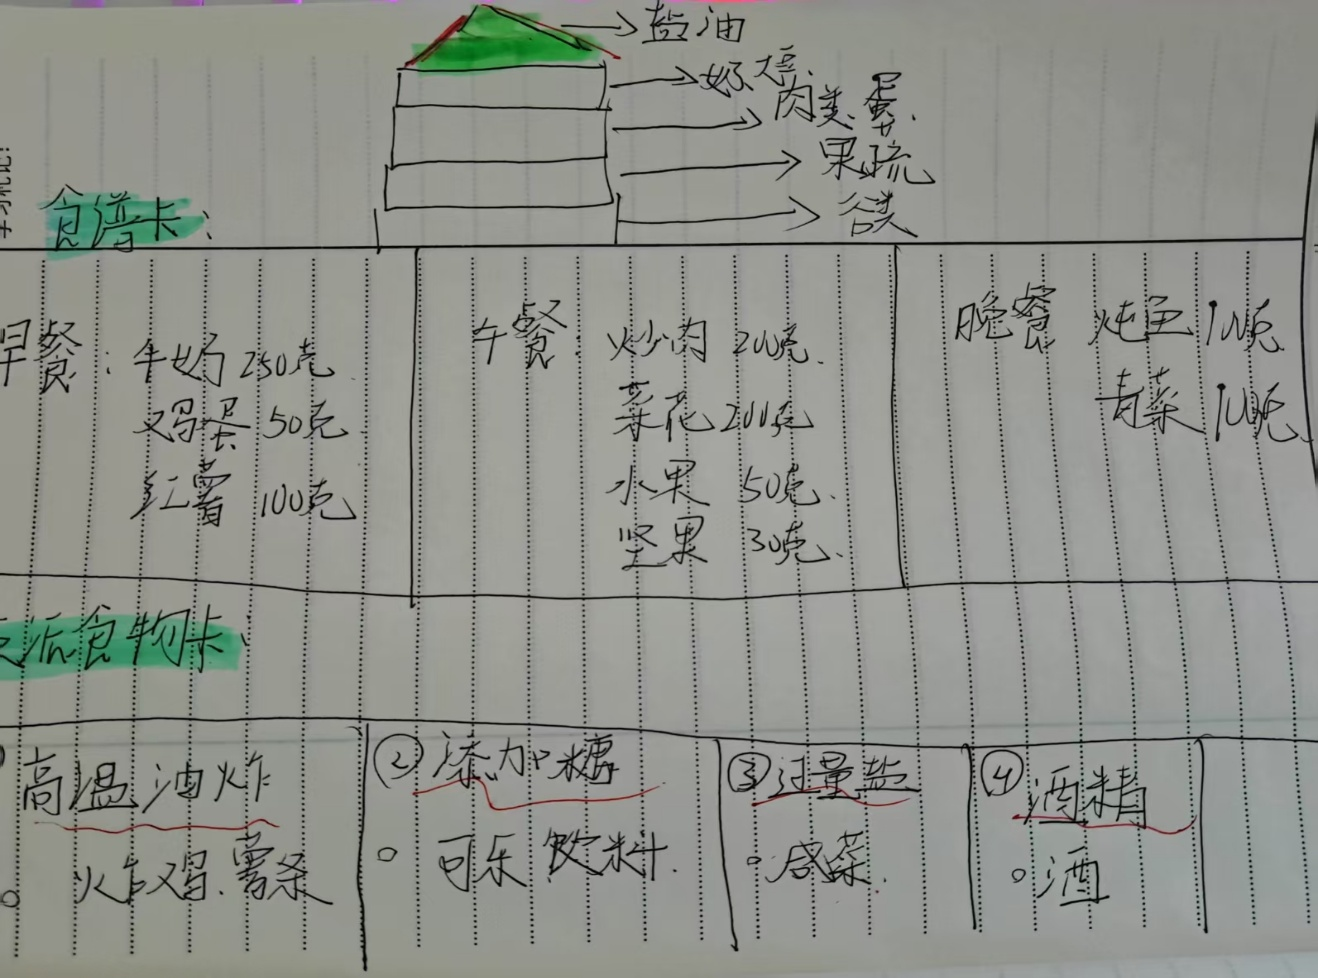 盐油
奶大豆.
肉类.蛋.
果疏
谷类
食谱卡:
早餐: 牛奶 250克
鸡蛋 50克
红薯 100克
午餐: 炒肉 200克.
菜花 200克
水果 50克.
坚果 30克.
晚餐 炖鱼 100克
青菜 100克
派食物卡:
高温油炸
○ 炸鸡.薯条
② 添加糖
○ 可乐 饮料.
③ 过量盐
○ 咸菜.
④ 酒精
○ 酒